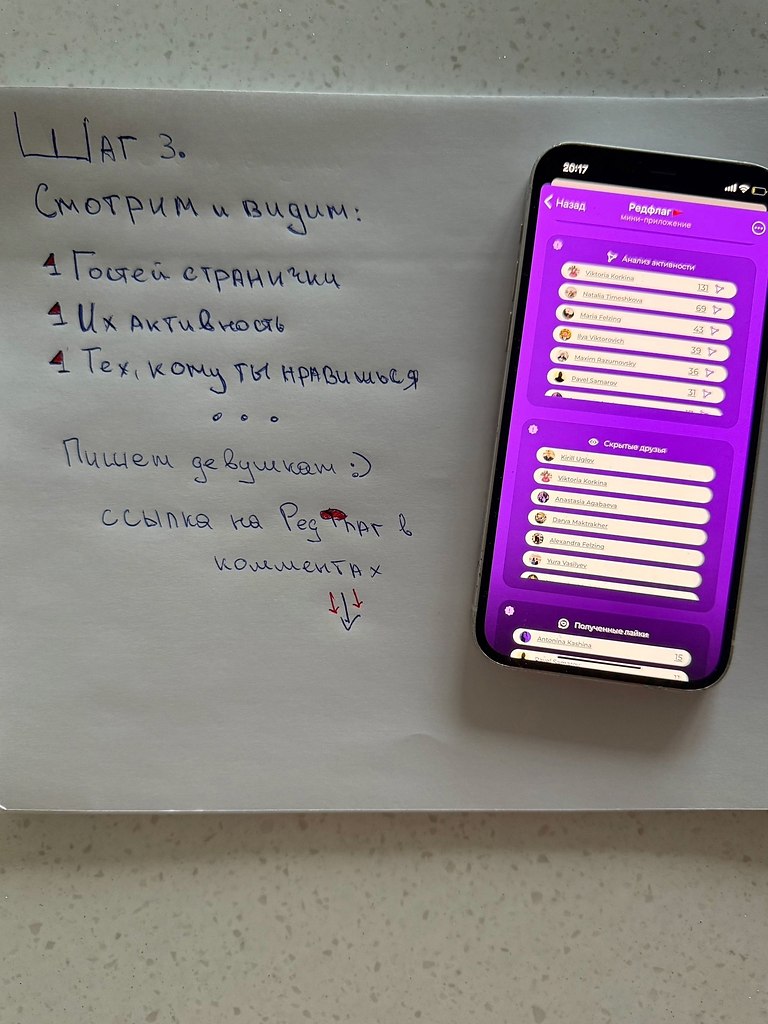 Шаг 3.
Смотрим и видим:
1 Гостей странички
1 Их активность
1 Тех, кому ты нравишься
...
Пишем девушкам :)
ссылка на Редфлаг в
комментах
20:17
Назад
Редфлаг
мини-приложение
Анализ активности
Viktoria Korkina 131
Natalia Timeshkova 69
Maria Felzing 43
Ilya Viktorovich 39
Maxim Razumovsky 36
Pavel Samarov 31
Скрытые друзья
Kirill Uglov
Viktoria Korkina
Anastasia Agabaeva
Darya Maktrakher
Alexandra Felzing
Yura Vasilyev
Полученные лайки
Antonina Kashina 15
11